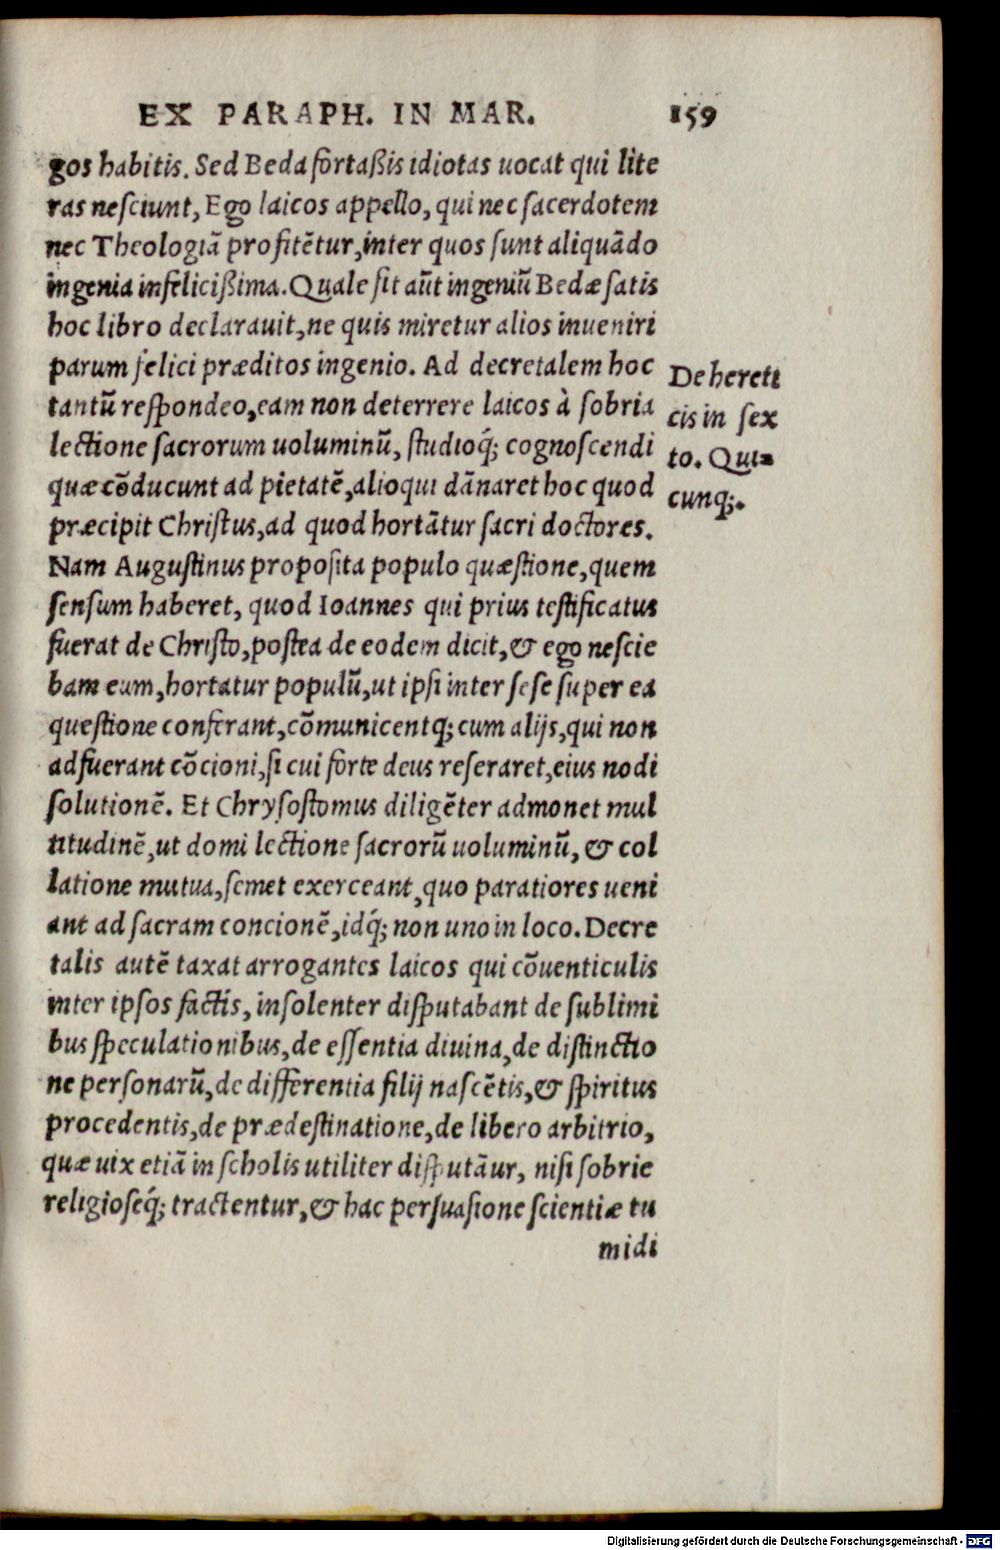 EX PARAPH. IN MAR. 159
gos habitis. Sed Beda fortaßis idiotas uocat qui lite
ras nesciunt, Ego laicos appello, qui nec sacerdotem
nec Theologiā profitētur, inter quos sunt aliquādo
ingenia infelicißima. Quale sit aūt ingeniū Bedæ satis
hoc libro declarauit, ne quis miretur alios inueniri
parum felici præditos ingenio. Ad decretalem hoc
tantū respondeo, eam non deterrere laicos à sobria
lectione sacrorum uoluminū, studioq́; cognoscendi
quæ cōducunt ad pietatē, alioqui dānaret hoc quod
præcipit Christus, ad quod hortātur sacri doctores.
Nam Augustinus proposita populo quæstione, quem
sensum haberet, quod Ioannes qui prius testificatus
fuerat de Christo, postea de eodem dicit, & ego nescie
bam eum, hortatur populū, ut ipsi inter sese super ea
questione conferant, cōmunicentq; cum alijs, qui non
adfuerant cōcioni, si cui forte deus reseraret, eius nodi
solutionē. Et Chrysostomus diligēter admonet mul
titudinē, ut domi lectione sacrorū uoluminū, & col
latione mutua, semet exerceant, quo paratiores ueni
ant ad sacram concionē, idq́; non uno in loco. Decre
talis autē taxat arrogantes laicos qui cōuenticulis
inter ipsos factis, insolenter disputabant de sublimi
bus speculationibus, de essentia diuina, de distinctio
ne personarū, de differentia filij nascētis, & spiritus
procedentis, de prædestinatione, de libero arbitrio,
quæ uix etiā in scholis utiliter disputāur, nisi sobrie
religioseq́; tractentur, & hac persuasione scientiæ tu
midi
De hereti
cis in sex
to. Qui-
cunq;.
Digitalisierung gefördert durch die Deutsche Forschungsgemeinschaft - DFG